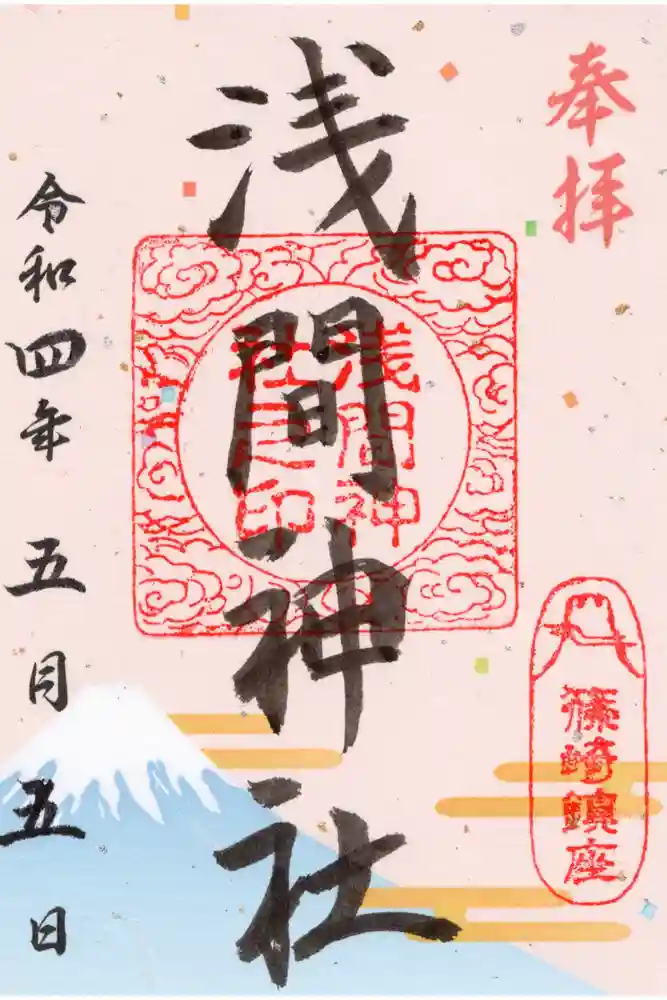 奉拝
篠崎鎮座
浅間神社
浅間神
社之印
令和四年 五月 五日